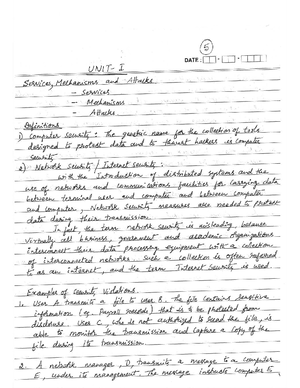 5
DATE:
UNIT-I
Services, Mechanisms and Attacks
- Services
- Mechanisms
- Attacks
Definitions
1) Computer Security: The generic name for the collection of tools
designed to protect data and to thwart hackers is computer
security.
2) Network Security / Internet Security:
With the Introduction of distributed systems and the
use of networks and communications facilities for carrying data
between terminal user and computer and between computer
and computer, Network Security measures are needed to protect
data during their transmission.
In fact, the term network security is misleading, because
virtually all business, government and academic organizations
interconnect their data processing equipment with a collection
of interconnected networks. Such a collection is often referred
to as an internet, and the term Internet Security is used.
Examples of Security Violations:
1. User A transmits a file to user B. The file contains sensitive
information (eg., Payroll records) that is to be protected from
disclosure. User C, who is not authorized to read the file, is
able to monitor the transmission and capture a copy of the
file during its transmission.
2. A network manager, D, transmits a message to a computer
E, under its management. The message instructs computer to